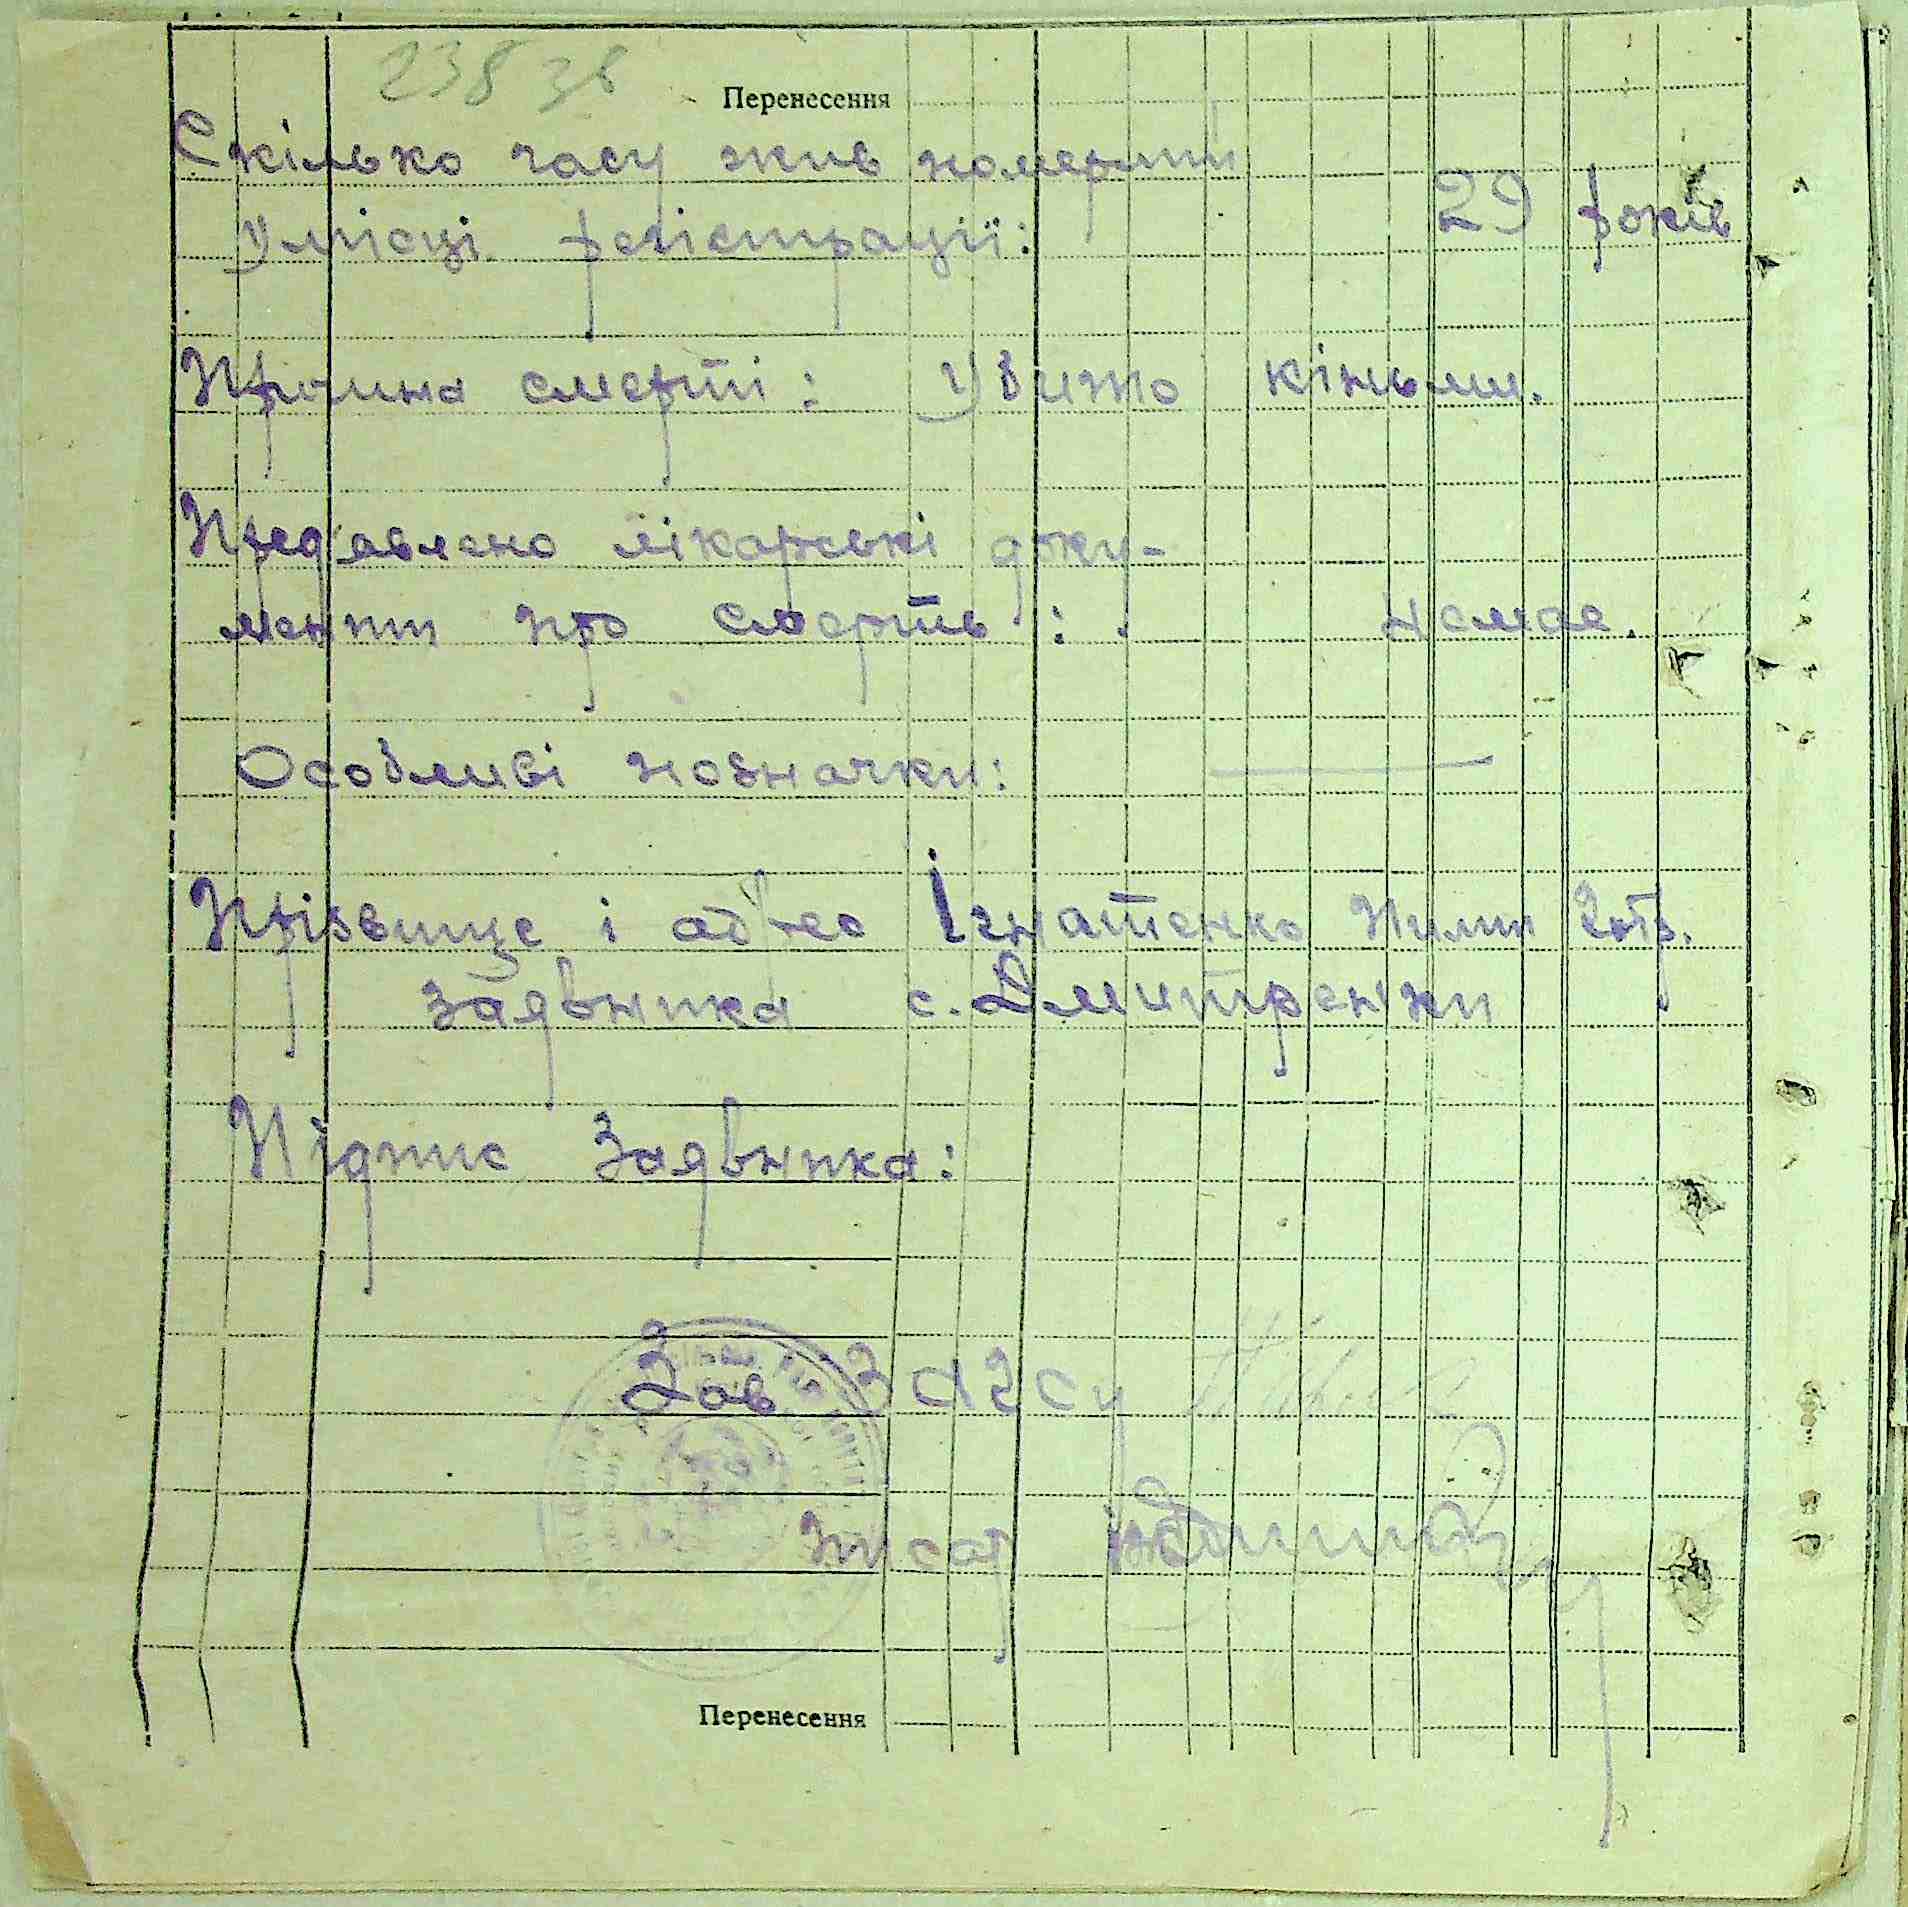 238 38
Перенесення
Скілько часу жив померший
у місці реєстрації: 29 років
Причина смерті: Убито кіньми.
Пред'явлено лікарські доку-
менти про смерть: немає.
Особливі позначки: —
Прізвище і адрес Ігнатенко Пилип
Заявника с. Дмитренки
Підпис Заявника:
Зав Загсу
писар
Перенесення